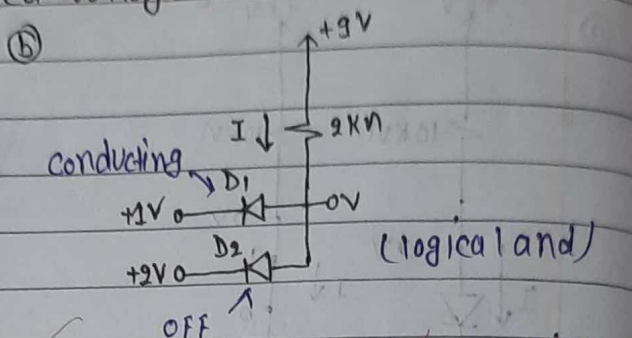 (b)
+9V
I
2KΩ
conducting
D1
+1V
oV
D2
(logical and)
+2V
OFF